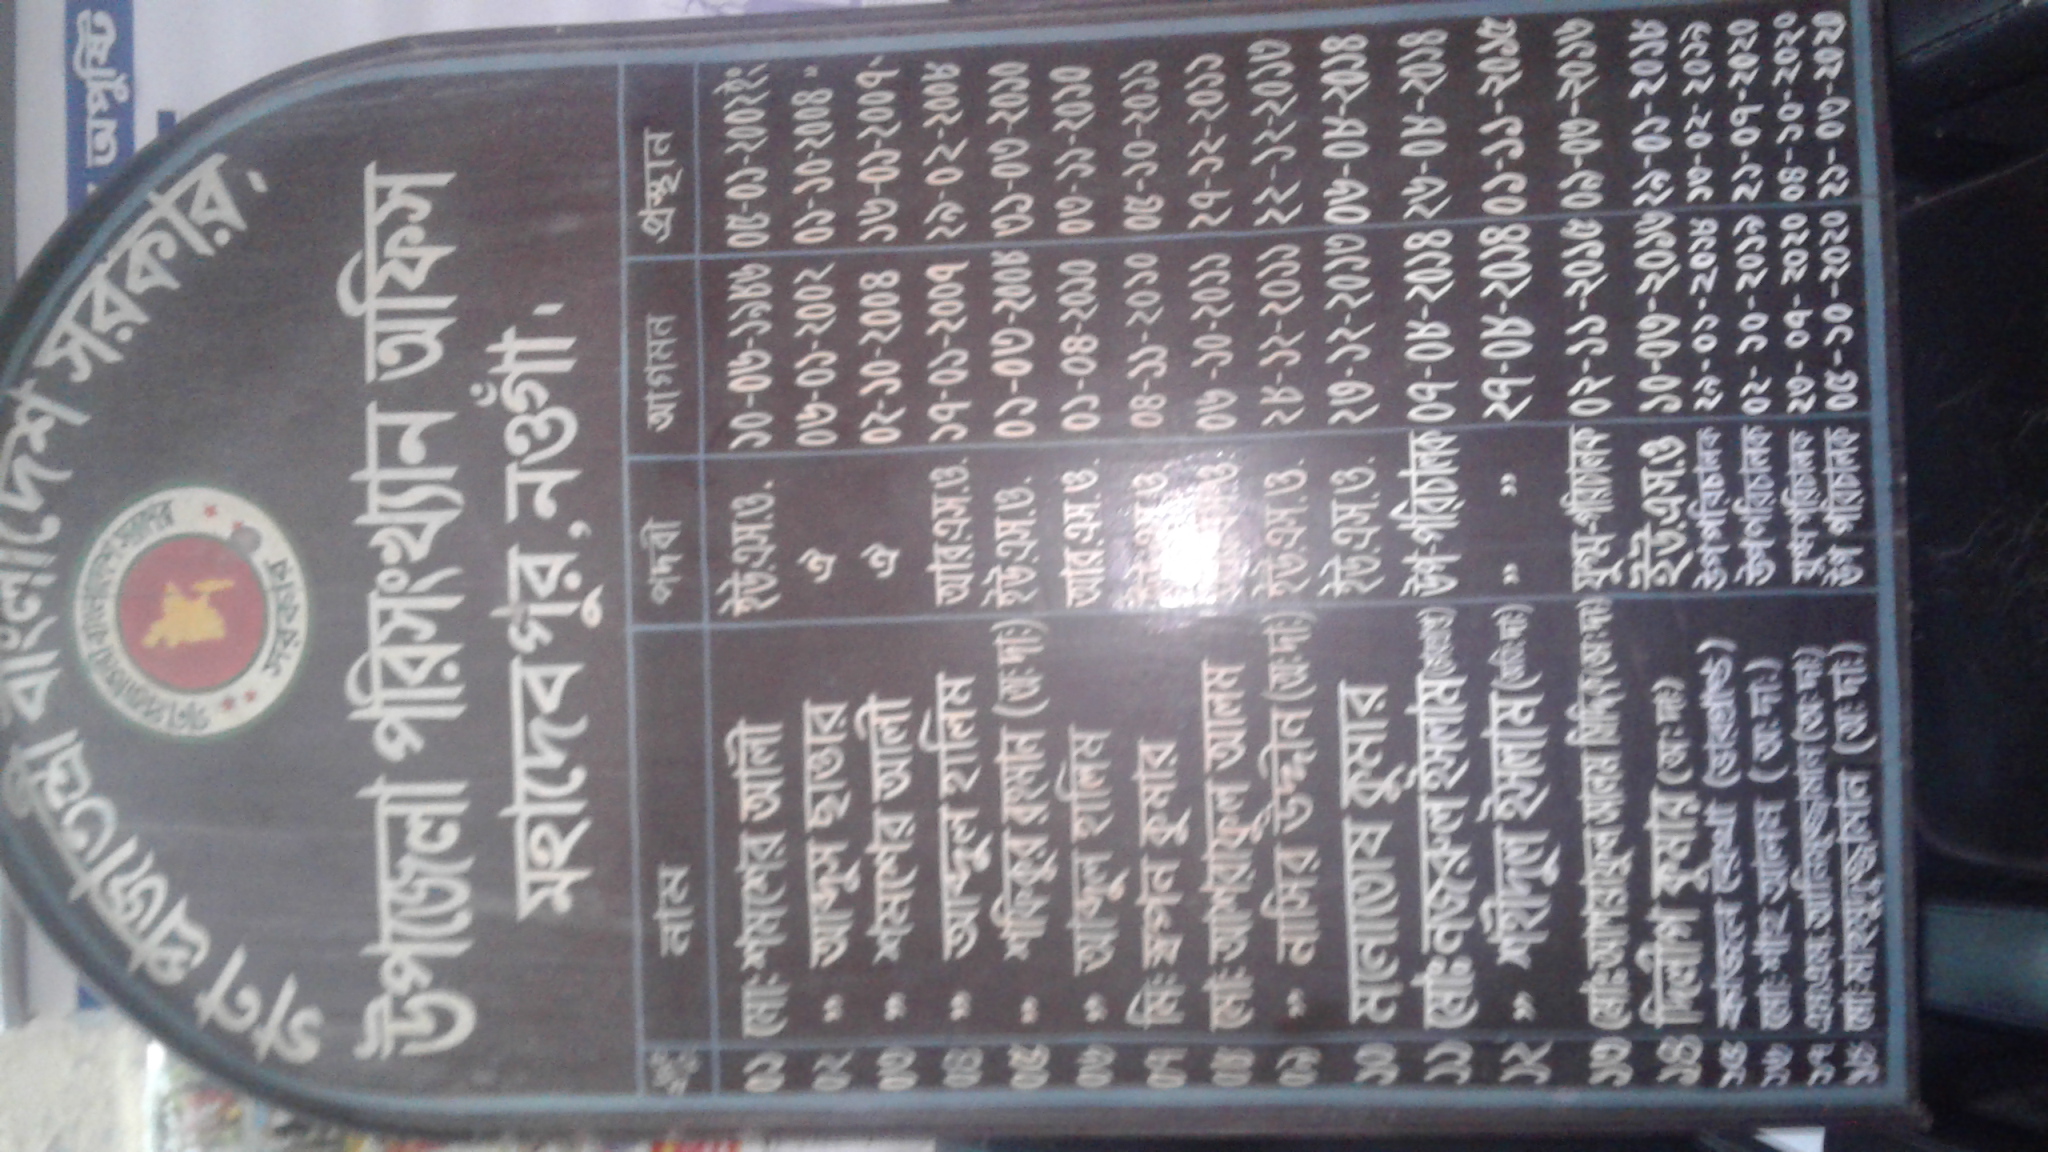 অপুষ্টি
গণ প্রজাতন্ত্রী বাংলাদেশ সরকার.
গণপ্রজাতন্ত্রী বাংলাদেশ সরকার
উপজেলা পরিসংখ্যান অফিস
মহাদেবপুর, নওগাঁ.
নাম পদবী আগমন প্রস্থান
০১ মো: শমশের আলী ইউ.এস.ও. ১০-০৬-১৯৮৬ ০৫-০১-২০০২ইং
০২ " আব্দুস ছাত্তার ঐ ০৬-০১-২০০২ ০১-১০-২০০৪ "
০৩ " শমশের আলী ঐ ০২-১০-২০০৪ ১৬-০১-২০০৭-
০৪ " আব্দুল হালিম আর.এস.ও. ১৭-০১-২০০৭ ২৯-০২-২০০৮
০৫ " শফিকুর রহমান (অ: দা:) ইউ.এস.ও. ০১-০৩-২০০৮ ৩১-০৩-২০১০
০৬ " আব্দুল হালিম আর.এস.ও. ০১-০৪-২০১০ ০৩-১১-২০১০
০৭ মি: স্বপন কুমার ০৪-১১-২০১০ ০৫-১০-২০১১
০৮ মো: আশরাফুল আলম ০৬-১০-২০১১ ২৭-১২-২০১১
০৯ " নাসির উদ্দীন (অ: দা:) ইউ.এস.ও. ২৮-১২-২০১১ ২২-১২-২০১৩
১০ মনোতোষ কুমার ইউ.এস.ও. ২৩-১২-২০১৩ ০৬-০৪-২০১৪
১১ মোঃ নজরুল ইসলাম উপ-পরিচালক ০৭-০৪-২০১৪ ২৬-০৪-২০১৪
১২ " শহীদুল ইসলাম " " ২৭-০৪-২০১৪ ০১-১১-২০১৫
১৩ মো: আলম (অ: দা:) যুগ্ম-পরিচালক ০২-১১-২০১৫ ০৯-০৩-২০১৬
১৪ দিলীপ কুমার (অ: দা:) ইউ.এস.ও ১০-০৩-২০১৬ ২৯-০১-২০১৮
১৫ কাজল রেখা (ভারপ্রাপ্ত) উপপরিচালক ২৯-০১-২০১৮ ১৩-০২-২০১৯
১৬ মো: শাহ আলম (অ: দা:) উপপরিচালক ০২-১০-২০১৯ ২১-০৭-২০২০
১৭ এস এম আনিছুজ্জামান (অ: দা:) যুগ্মপরিচালক ২৩-০৭-২০২০ ০৪-১০-২০২০
১৮ মো: মাহফুজুর্জামান (অ: দা:) উপ পরিচালক ০৫-১০-২০২০ ২১-০৩-২০২৪